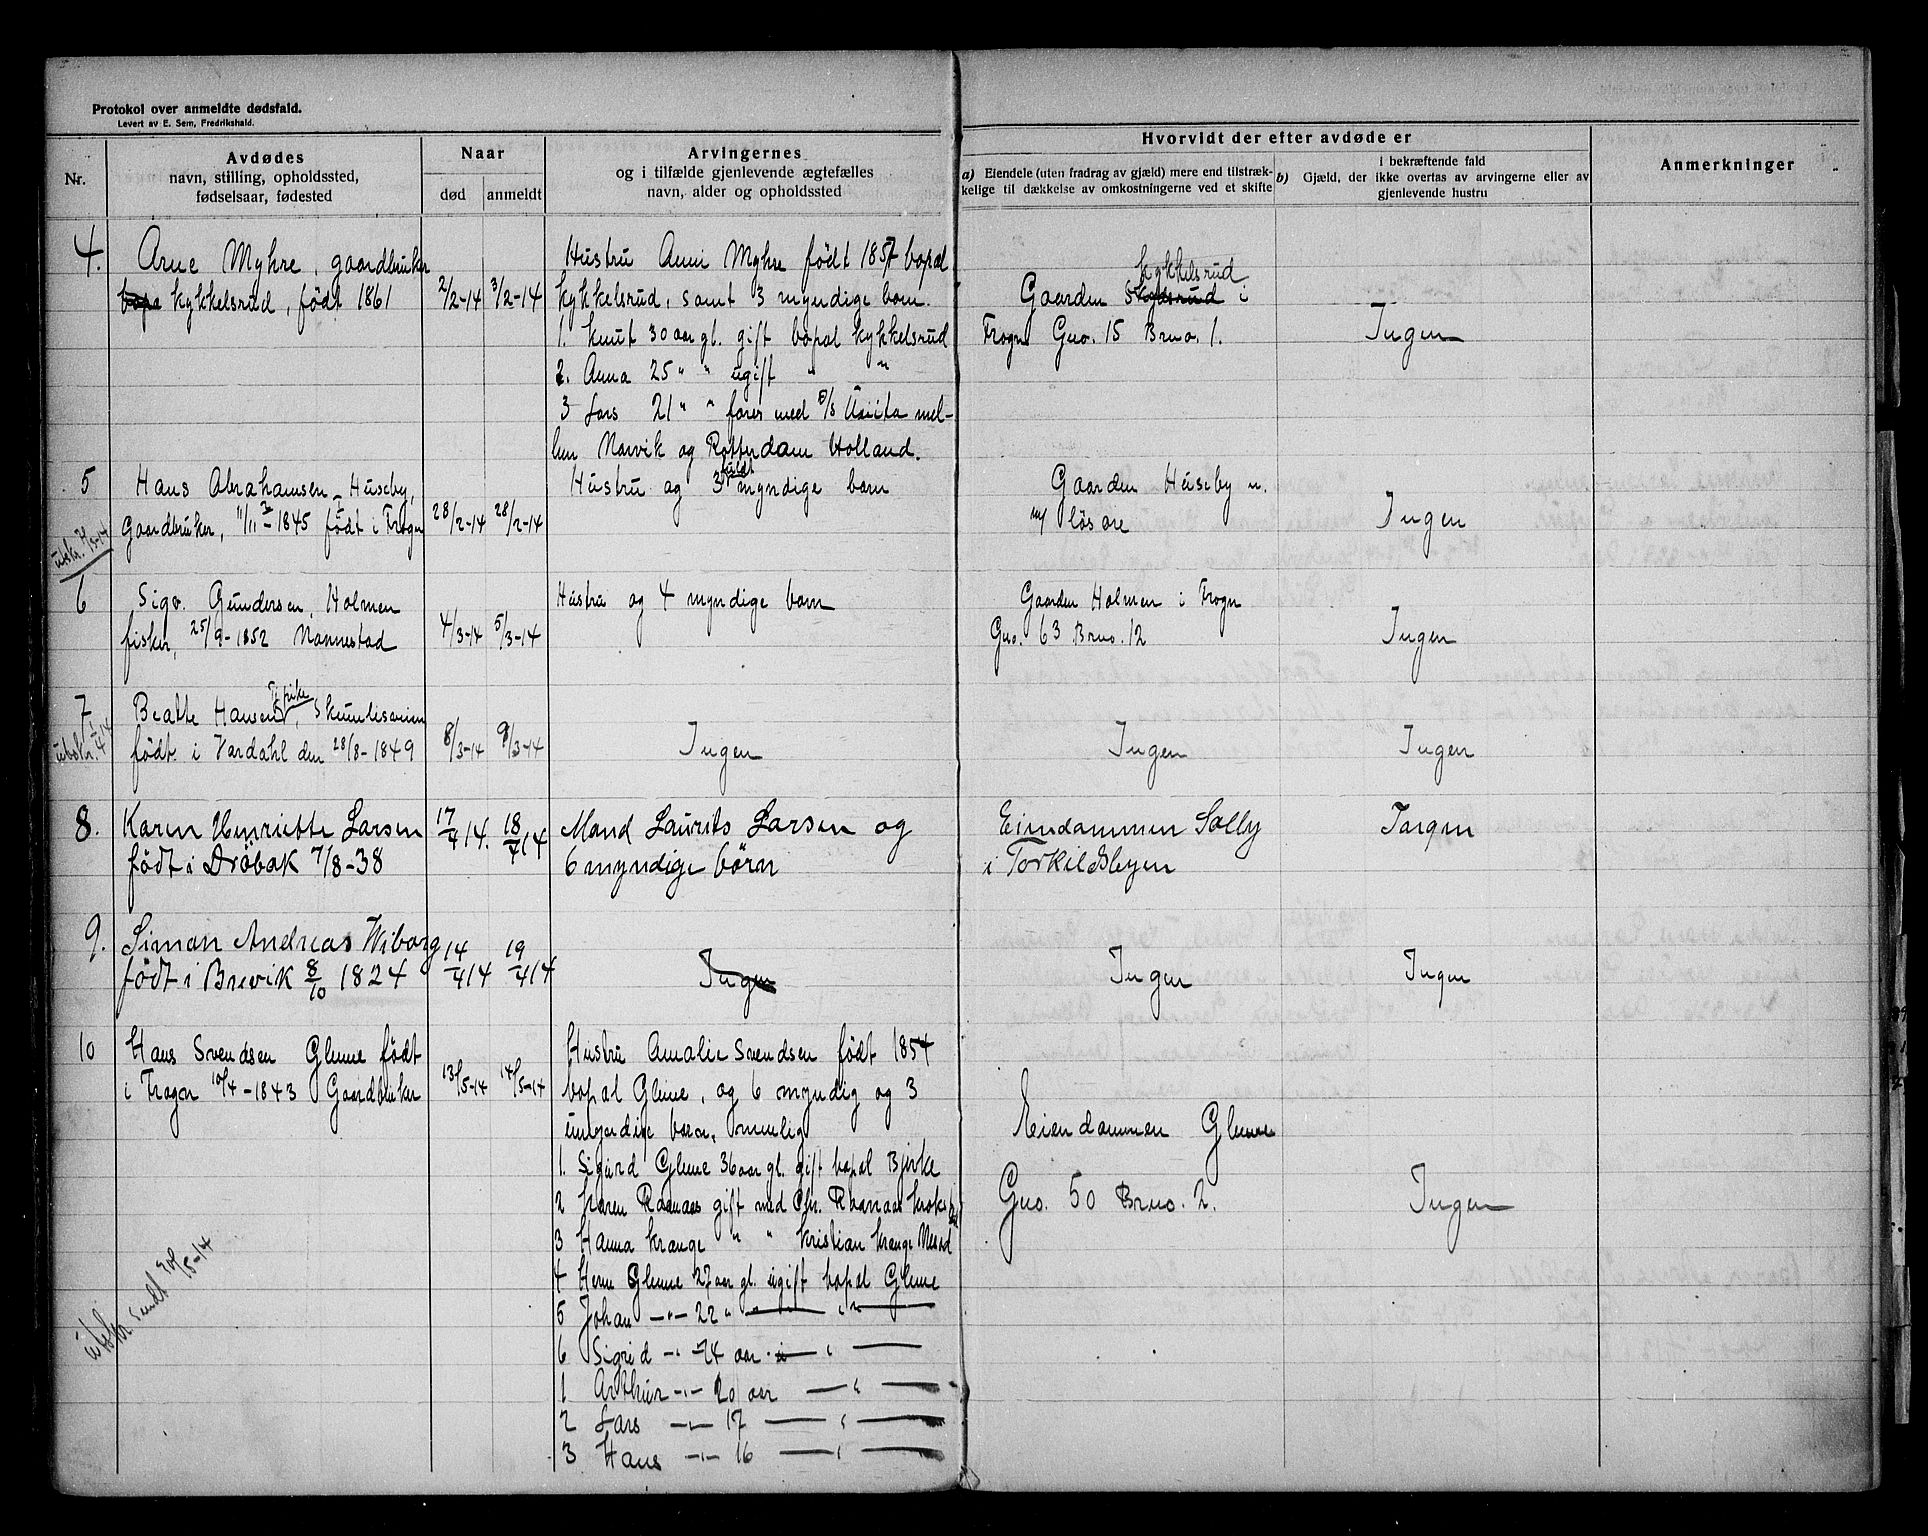 Protokol over anmeldte dødsfald.
Levert av E. Sem, Fredrikshald.
Nr.
Avdødes
navn, stilling, opholdssted,
fødselsaar, fødested
Naar
død
anmeldt
Arvingernes
og i tilfælde gjenlevende ægtefælles
navn, alder og opholdssted
Hvorvidt der efter avdøde er
a) Eiendele (uten fradrag av gjæld) mere end tilstræk-
kelige til dækkelse av omkostningerne ved et skifte
i bekræftende fald
b) Gjæld, der ikke overtas av arvingerne eller av
gjenlevende hustru
Anmerkninger
4.
Arne Myhre, gaardbruker
Kykkelsrud, født 1861
2/2-14
3/2-14
Hustru Anni Myhre født 1857 bopal
Kykkelsrud, samt 3 myndige barn.
1. Knut 30 aar gl. gift bopal Kykkelsrud
2. Anna 25 " " ugift " "
3 Lars 21 " " farer med S/S mel-
lem Narvik og Rotterdam Holland.
Kykkelsrud
Gaarden i
Frogn Gno. 15 Bruo. 1.
Ingen
5
Hans Abrahamsen Huseby,
Gaardbruker, 11/11-1845 født i Frogn
28/2-14
28/2-14
Hustru og 3 fuldt myndige barn
Gaarden Huseby n.
m/ løsøre
Ingen
6
Sigv. Gundersen, Holmen
fisker, 25/9-1852 Nannestad
4/3-14
5/3-14
Hustru og 4 myndige barn
Gaarden Holmen i Frogn
Gno. 63 Bruo. 12
Ingen
7
utskr. 1/4 14
Beatte Hansen, pike,
født i Vardahl den 28/8-1849
8/3-14
9/3-14
Ingen
Ingen
Ingen
8.
Karen Henriette Larsen
født i Dröbak 7/8-38
17/4 14.
18/4 14
Mand Laurits Larsen og
6 myndige börn
Eiendommen Solby
i Torkildsbyen
Ingen
9.
Simon Andreas Wiborg
født i Brevik 8/10 1824
14/4 14
19/4 14
Ingen
Ingen
Ingen
10
Hans Svendsen Glenne født
i Frogn 10/4-1843 Gaardbruker
13/5-14
14/5-14
Hustru Amalie Svendsen født 1854
bopal Glenne, og 6 myndig og 3
umyndige barn, nemlig
1. Sigurd Glenne 36 aar gl. gift bopal Bjerke
2 Karen Raanaas gift med Chr. Raanaas
3 Hanna Krange " " Kristian Krange Nesod
4 Glenne 27 aar gl. ugift bopal Glenne
5 Johan —"— 22 " — " —
6 Sigrid —"— 24 aar — " —
1 Arthur —"— 20 aar — " —
2 Lars —"— 17 — " —
3 Hans —"— 16 — " —
Eiendommen Glenne
Gno. 50 Bruo. 2.
Ingen
utskr. sendt 20/5-14